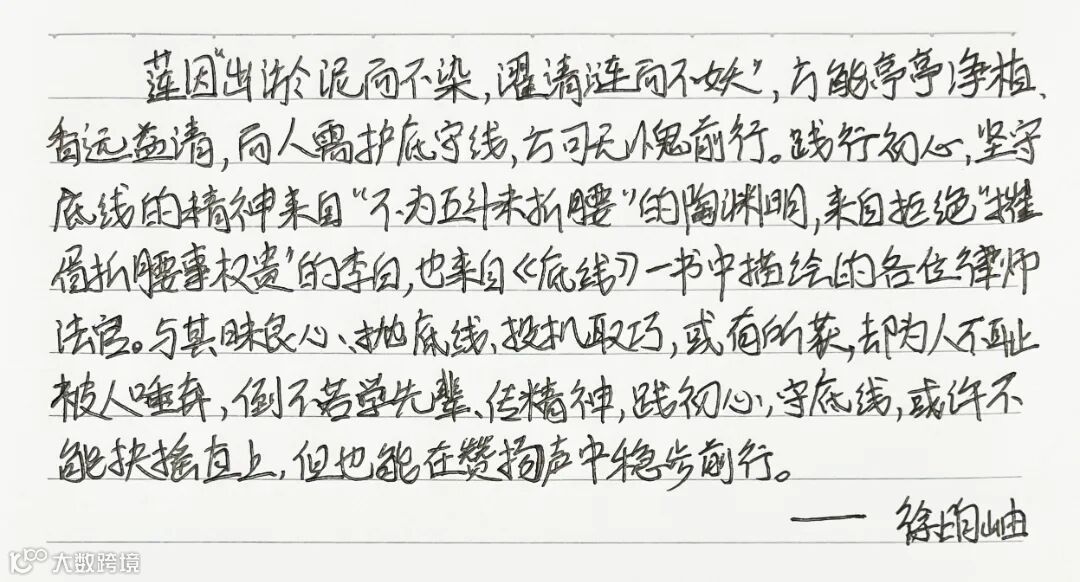 莲因“出淤泥而不染，濯清涟而不妖”，方能亭亭净植、
香远益清，而人需护底守线，方可无愧前行。践行初心，坚守
底线的精神来自“不为五斗米折腰”的陶渊明，来自拒绝“摧
眉折腰事权贵”的李白，也来自《底线》一书中描绘的各位律师
法官。与其昧良心、抛底线、投机取巧，或有所获，却为人不耻
被人唾弃，倒不若学先辈、传精神，践初心，守底线，或许不
能扶摇直上，但也能在赞扬声中稳步前行。
—— 徐
大数跨境